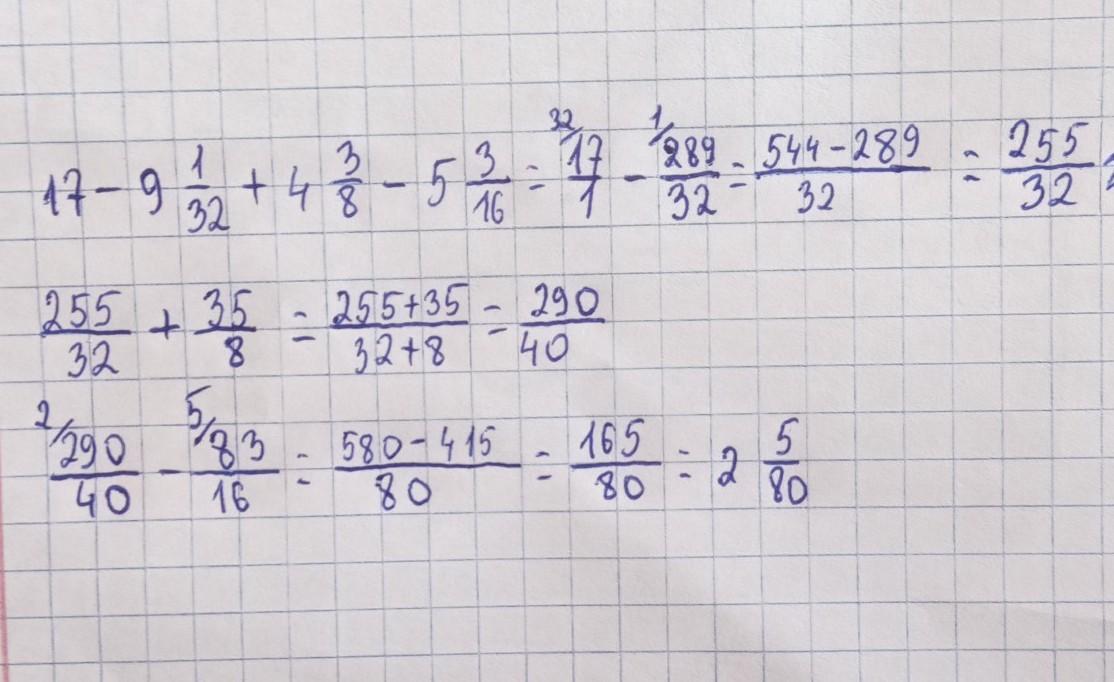 17 - 9 1/32 + 4 3/8 - 5 3/16 = 32/ 17/1 - 1/ 289/32 = 544-289/32 = 255/32;
255/32 + 35/8 = 255+35/32+8 = 290/40
2/ 290/40 - 5/ 83/16 = 580-415/80 = 165/80 = 2 5/80